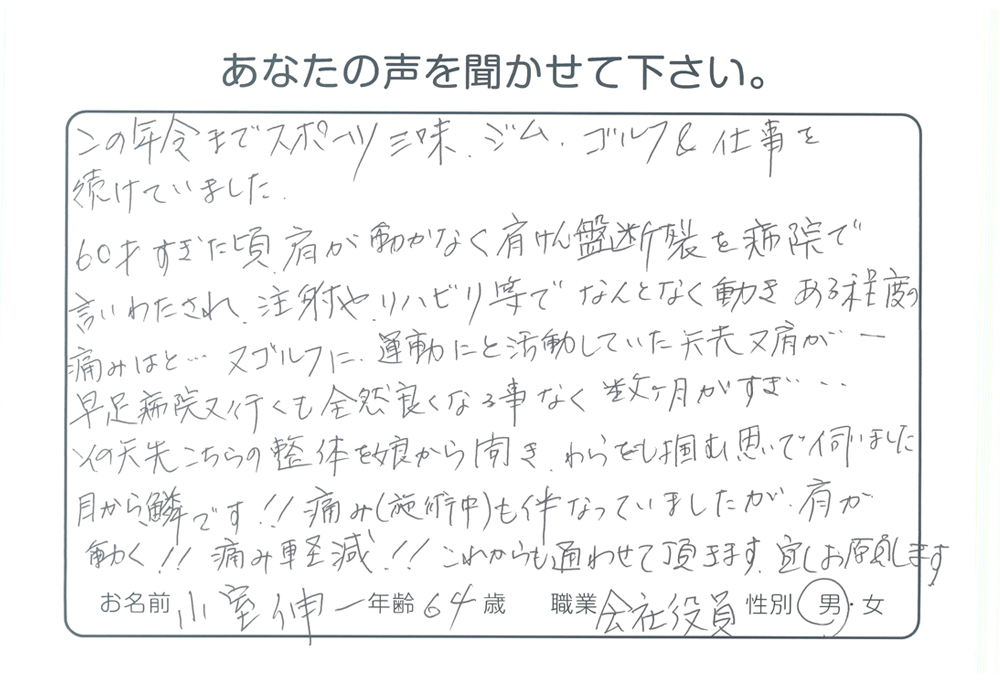 あなたの声を聞かせて下さい。
この年令までスポーツ三味、ジム、ゴルフ&仕事を
続けていました.
60才すぎた頃、肩が動かなく肩けん盤断裂を病院で
言いわたされ、注射や、リハビリ等でなんとなく動き ある程度の
痛みはと… 又ゴルフに、運動にと活動していた矢先又肩が―
早足病院又行くも全然良くなる事なく数ヶ月がすぎ・・・
その矢先こちらの整体を娘から聞き、わらをも掴む思いで伺いました
目から鱗です!!痛み(施術中)も伴なっていましたが、肩が
動く!! 痛み軽減!! これからも通わせて頂きます、宜しお願します
お名前 小室伸一 年齢 64歳 職業 会社役員 性別 男・女